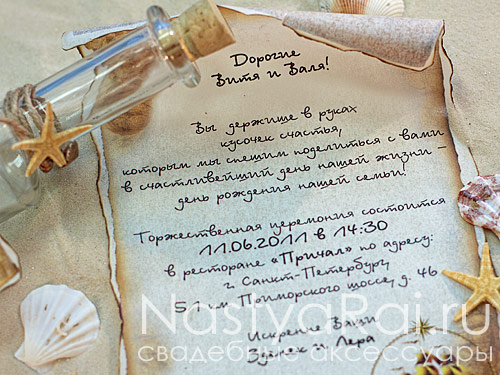 Дорогие
Витя и Валя!
Вы держите в руках
кусочек счастья,
которым мы спешим поделиться с вами
в счастливейший день нашей жизни –
день рождения нашей семьи!
Торжественная церемония состоится
11.06.2011 в 14:30
в ресторане «Причал» по адресу:
г. Санкт-Петербург,
51 км Приморского шоссе, д. 46
Искренне Ваши
и Лера
NastyaRai.ru
свадебные аксессуары